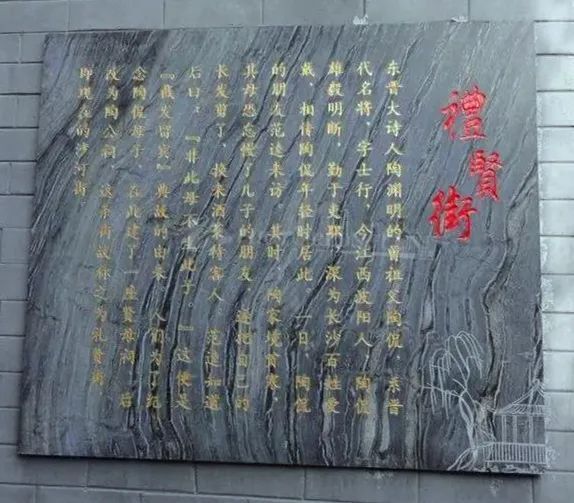 禮賢街
东晋大诗人陶渊明的曾祖父陶侃，东晋
代名将，字士行，今江西波阳人，陶侃
雄毅明断，勤于吏职，深为长沙百姓爱
戴，相传陶侃年轻时居此，一日，陶侃
的朋友范逵来访。其时，陶家境贫寒，
其母恐怠慢了儿子的朋友，遂把自己的
长发剪了，换来酒菜待客人，范逵知道
后曰：『非此母不生此子。』这便是
『截发留宾』典故的由来，人们为了纪
念陶侃母子，在此建了一座贤母祠，后
改为陶公祠，这条街故称之为礼贤街，
即现在的沙河街